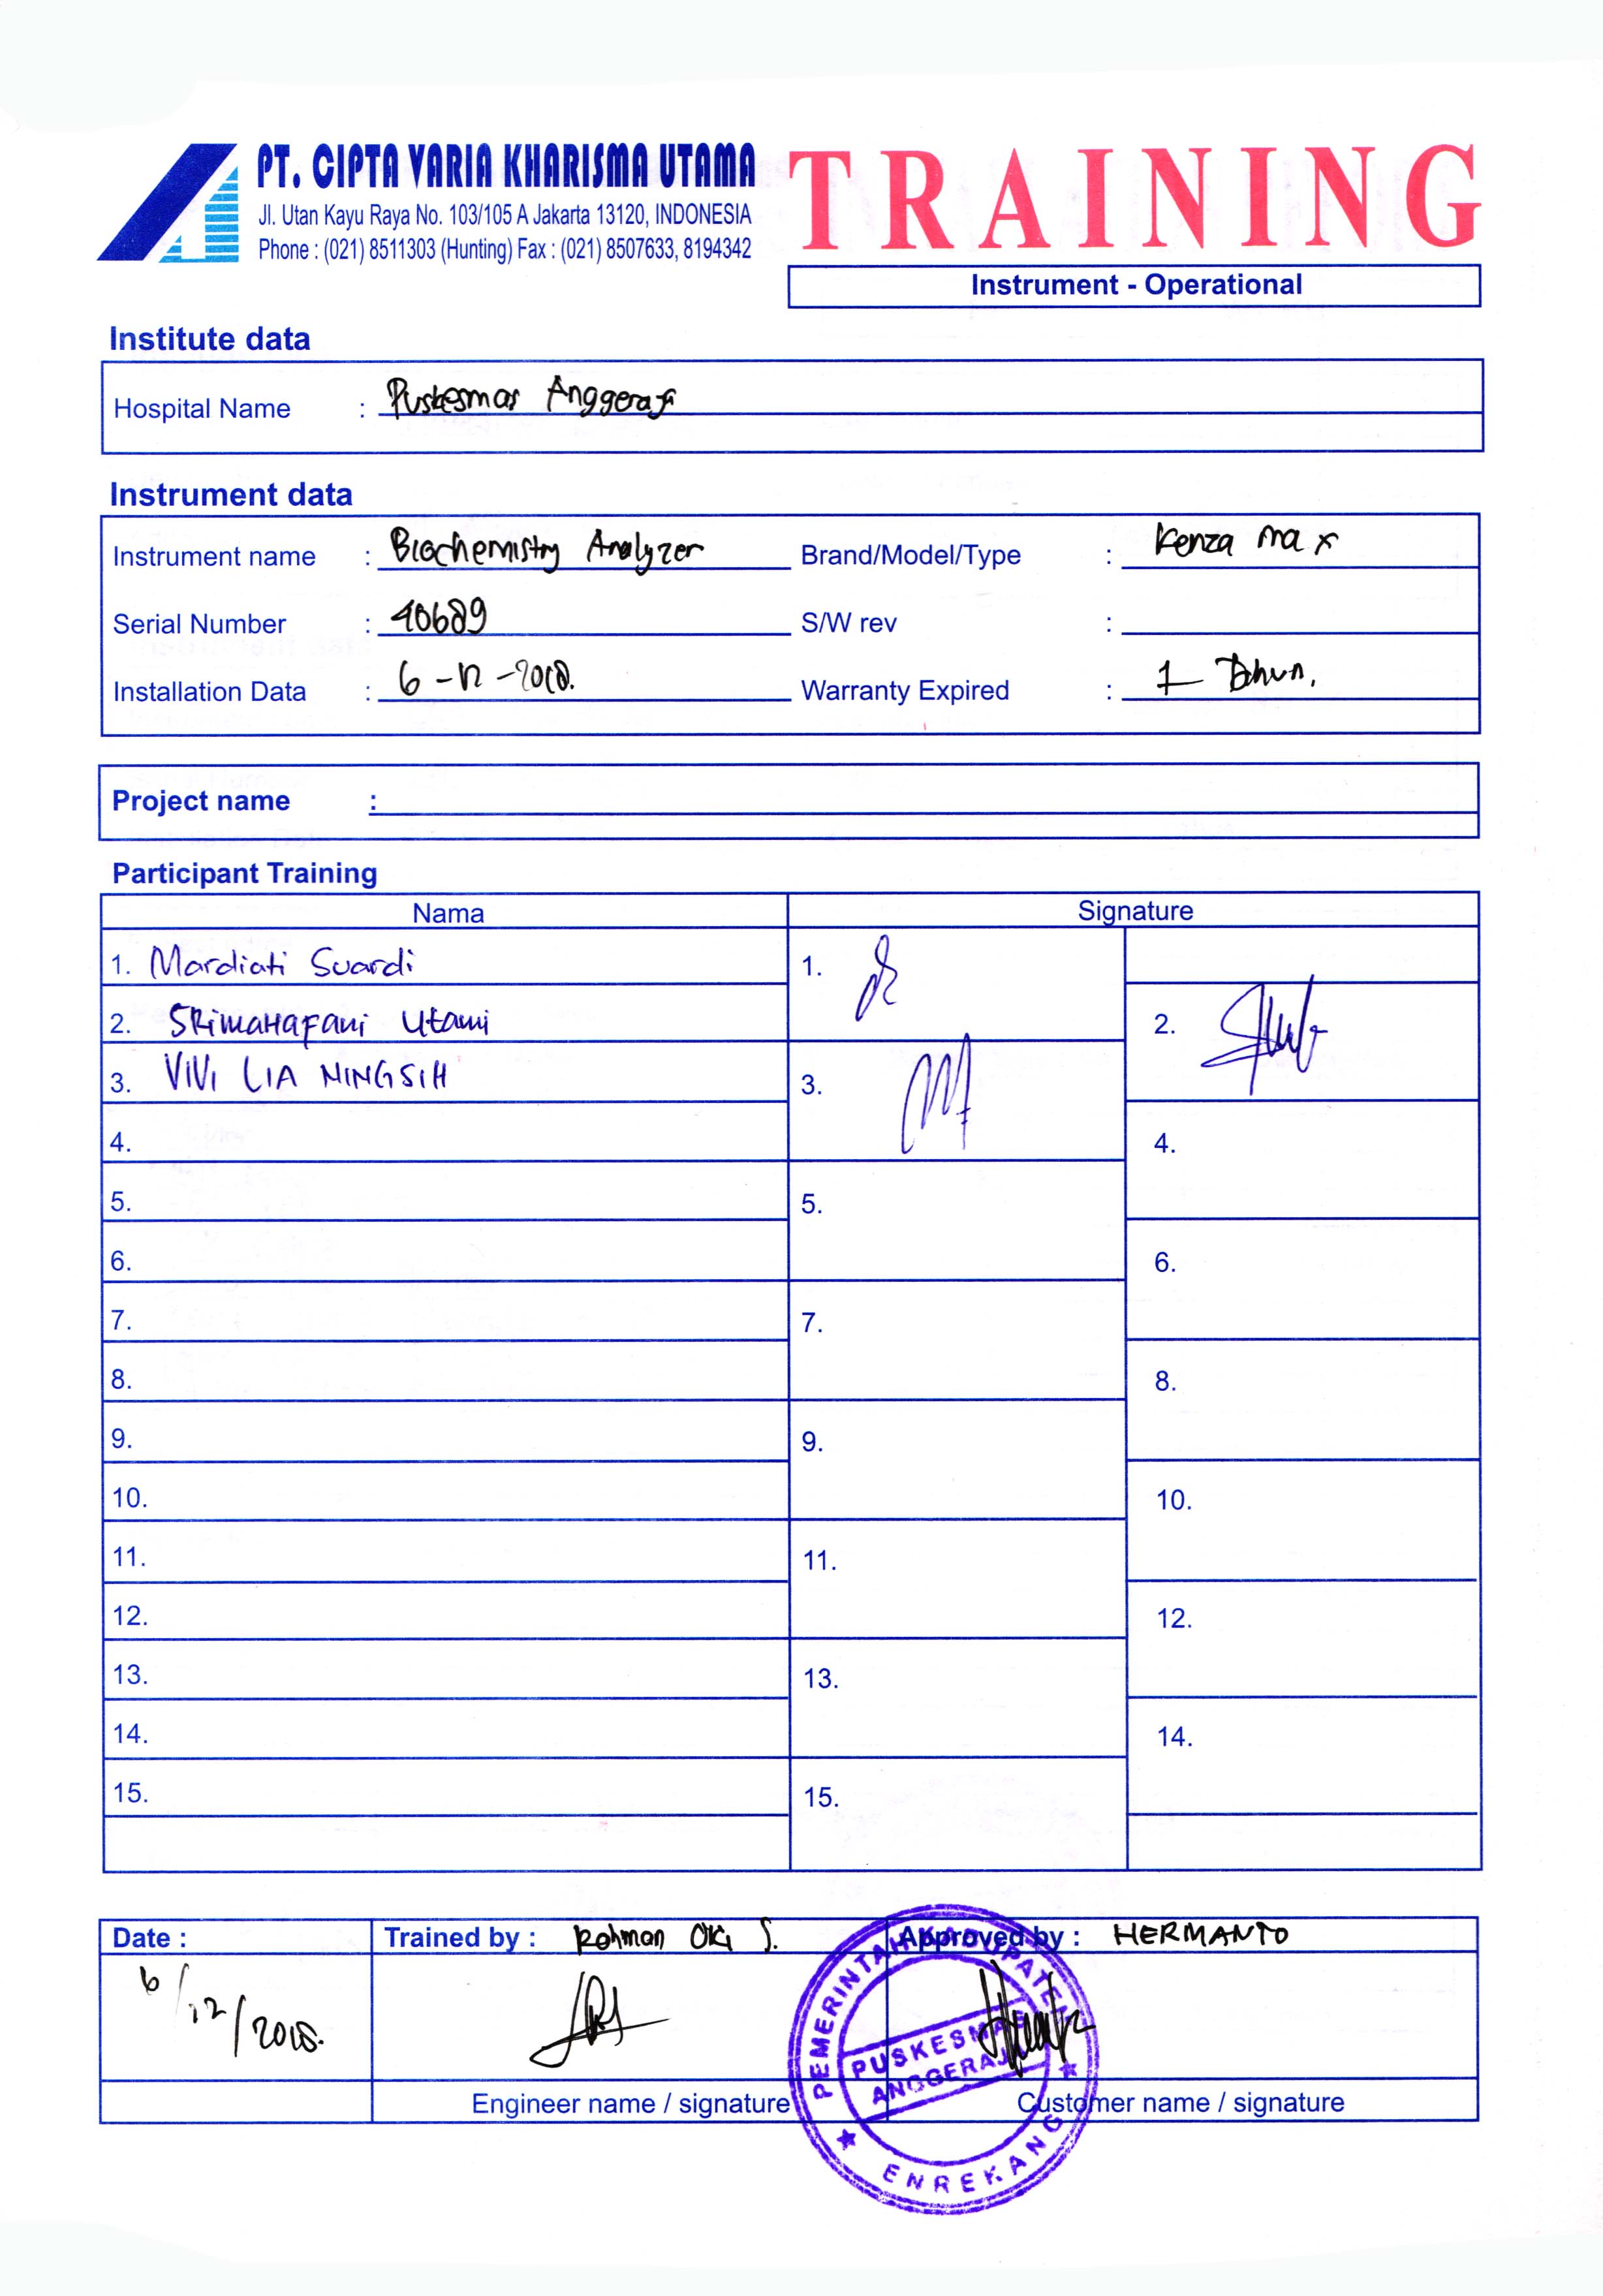 PT. CIPTA VARIA KHARISMA UTAMA
Jl. Utan Kayu Raya No. 103/105 A Jakarta 13120, INDONESIA
Phone : (021) 8511303 (Hunting) Fax : (021) 8507633, 8194342
TRAINING
Instrument - Operational
Institute data
Hospital Name : Puskesmas Anggeraja
Instrument data
Instrument name : Biochemistry Analyzer Brand/Model/Type : Kenza Max
Serial Number : 40689 S/W rev :
Installation Data : 6-12-2018. Warranty Expired : 1 Tahun.
Project name :
Participant Training
Nama Signature
1. Mardiati Suardi 1.
2. SRIMAHAFANI Utami 2.
3. VIVI LIA NINGSIH 3.
4. 4.
5. 5.
6. 6.
7. 7.
8. 8.
9. 9.
10. 10.
11. 11.
12. 12.
13. 13.
14. 14.
15. 15.
Date : Trained by : Rohman Oki S. Approved by : HERMANTO
6/12/2018.
Engineer name / signature Customer name / signature
PEMERINTAH KABUPATEN
PUSKESMAS
ANGGERAJA
ENREKANG